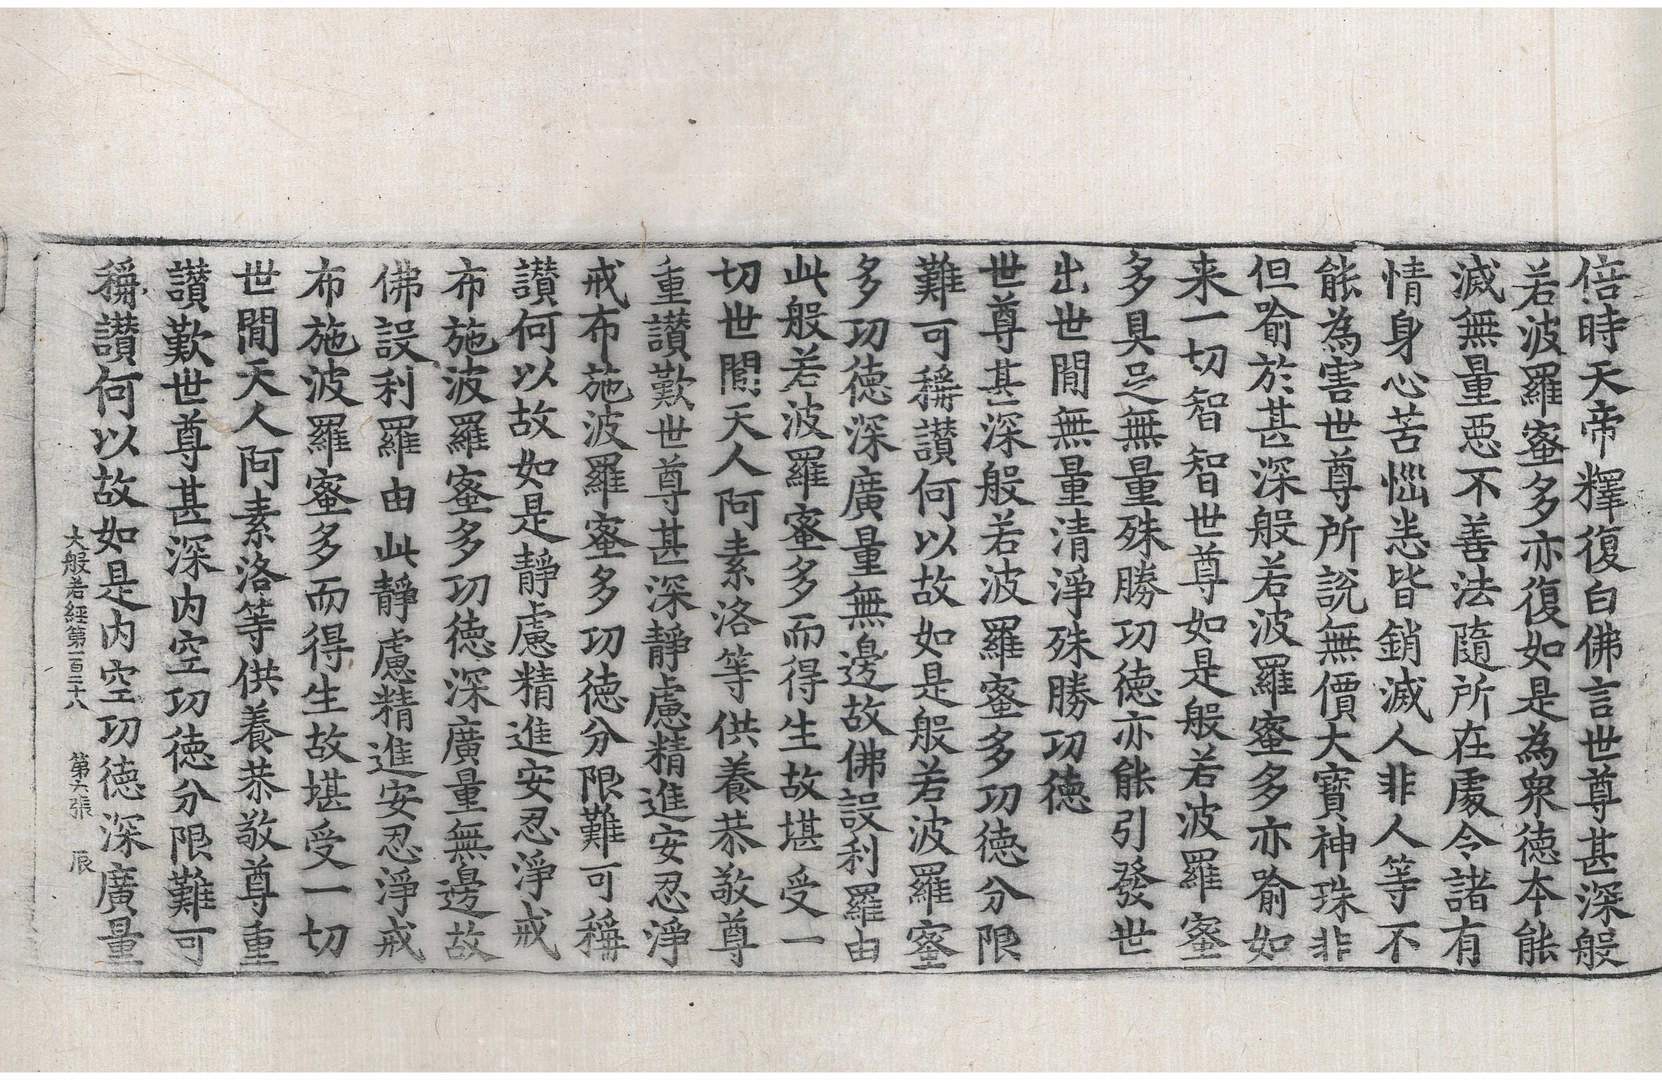 倍時天帝釋復白佛言世尊甚深般
若波羅蜜多亦復如是為衆德本能
滅無量惡不善法隨所在處令諸有
情身心苦惱悉皆銷滅人非人等不
能為害世尊所說無價大寶神珠非
但喻於甚深般若波羅蜜多亦喻如
来一切智智世尊如是般若波羅蜜
多具足無量殊勝功德亦能引發世
出世間無量清淨殊勝功德
世尊甚深般若波羅蜜多功德分限
難可稱讚何以故如是般若波羅蜜
多功德深廣量無邊故佛設利羅由
此般若波羅蜜多而得生故堪受一
切世間天人阿素洛等供養恭敬尊
重讚歎世尊甚深靜慮精進安忍淨
戒布施波羅蜜多功德分限難可稱
讚何以故如是靜慮精進安忍淨戒
布施波羅蜜多功德深廣量無邊故
佛設利羅由此靜慮精進安忍淨戒
布施波羅蜜多而得生故堪受一切
世間天人阿素洛等供養恭敬尊重
讚歎世尊甚深内空功德分限難可
稱讚何以故如是内空功德深廣量
大般若經第一百二十八 第六張 辰